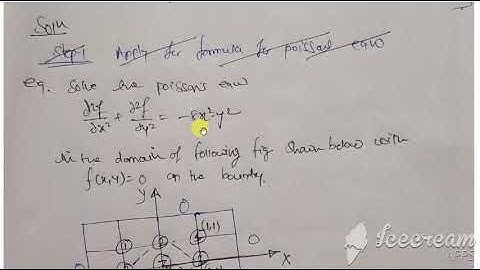 Soln
Step-1 Apply for formula for poissas eqn
eg. Solve the poissons eqn
∂²f/∂x² + ∂²f/∂y² = -8x²y²
in the domain of following fig shown below with
f(x,y)=0 on the bounty.
y
0
(1,1)
0
x
Icecream
APPS